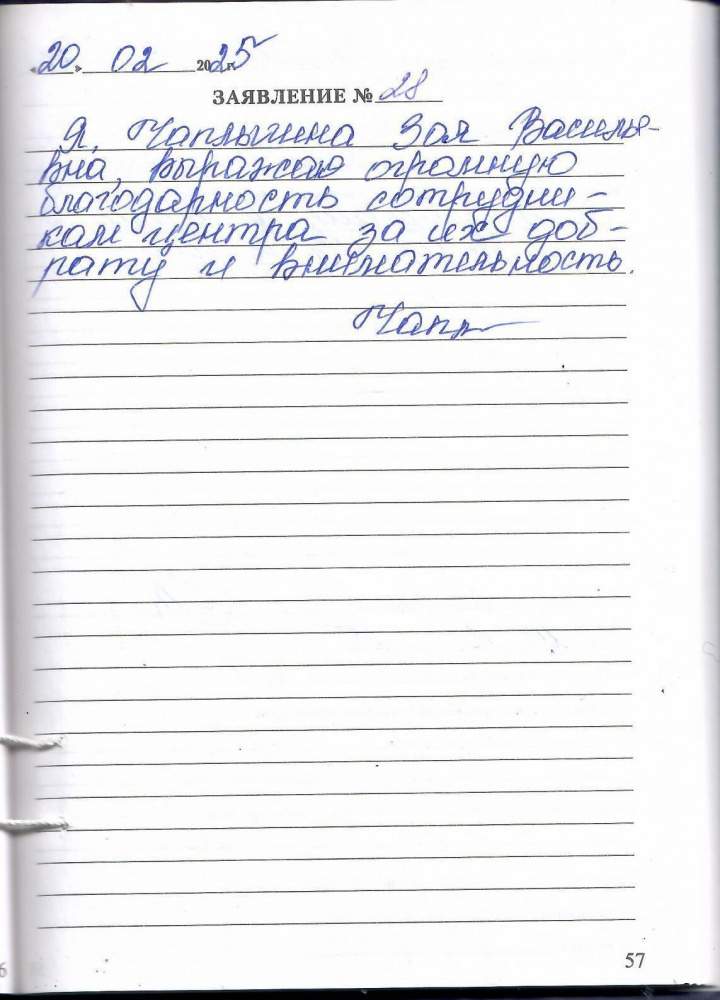 «20» 02 2025 г.
ЗАЯВЛЕНИЕ № 28
Я, Чаплыгина Зоя Василье-
вна, выражаю огромную
благодарность сотрудни-
кам центра за их доб-
рату и внимательность.
Чапл
57